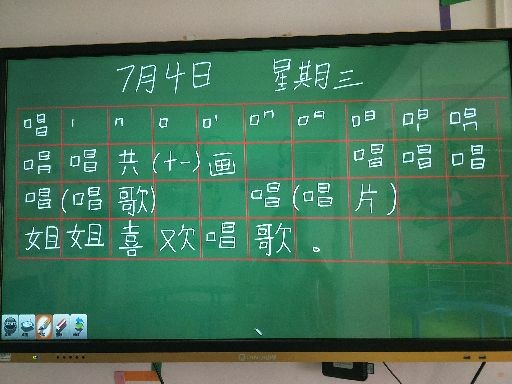 7月4日 星期三
唱 丨 冂 口 口丨 口冂 口日 唱 唱 唱
唱 唱 共(十一)画 唱 唱 唱
唱(唱歌) 唱(唱片)
姐姐喜欢唱歌。